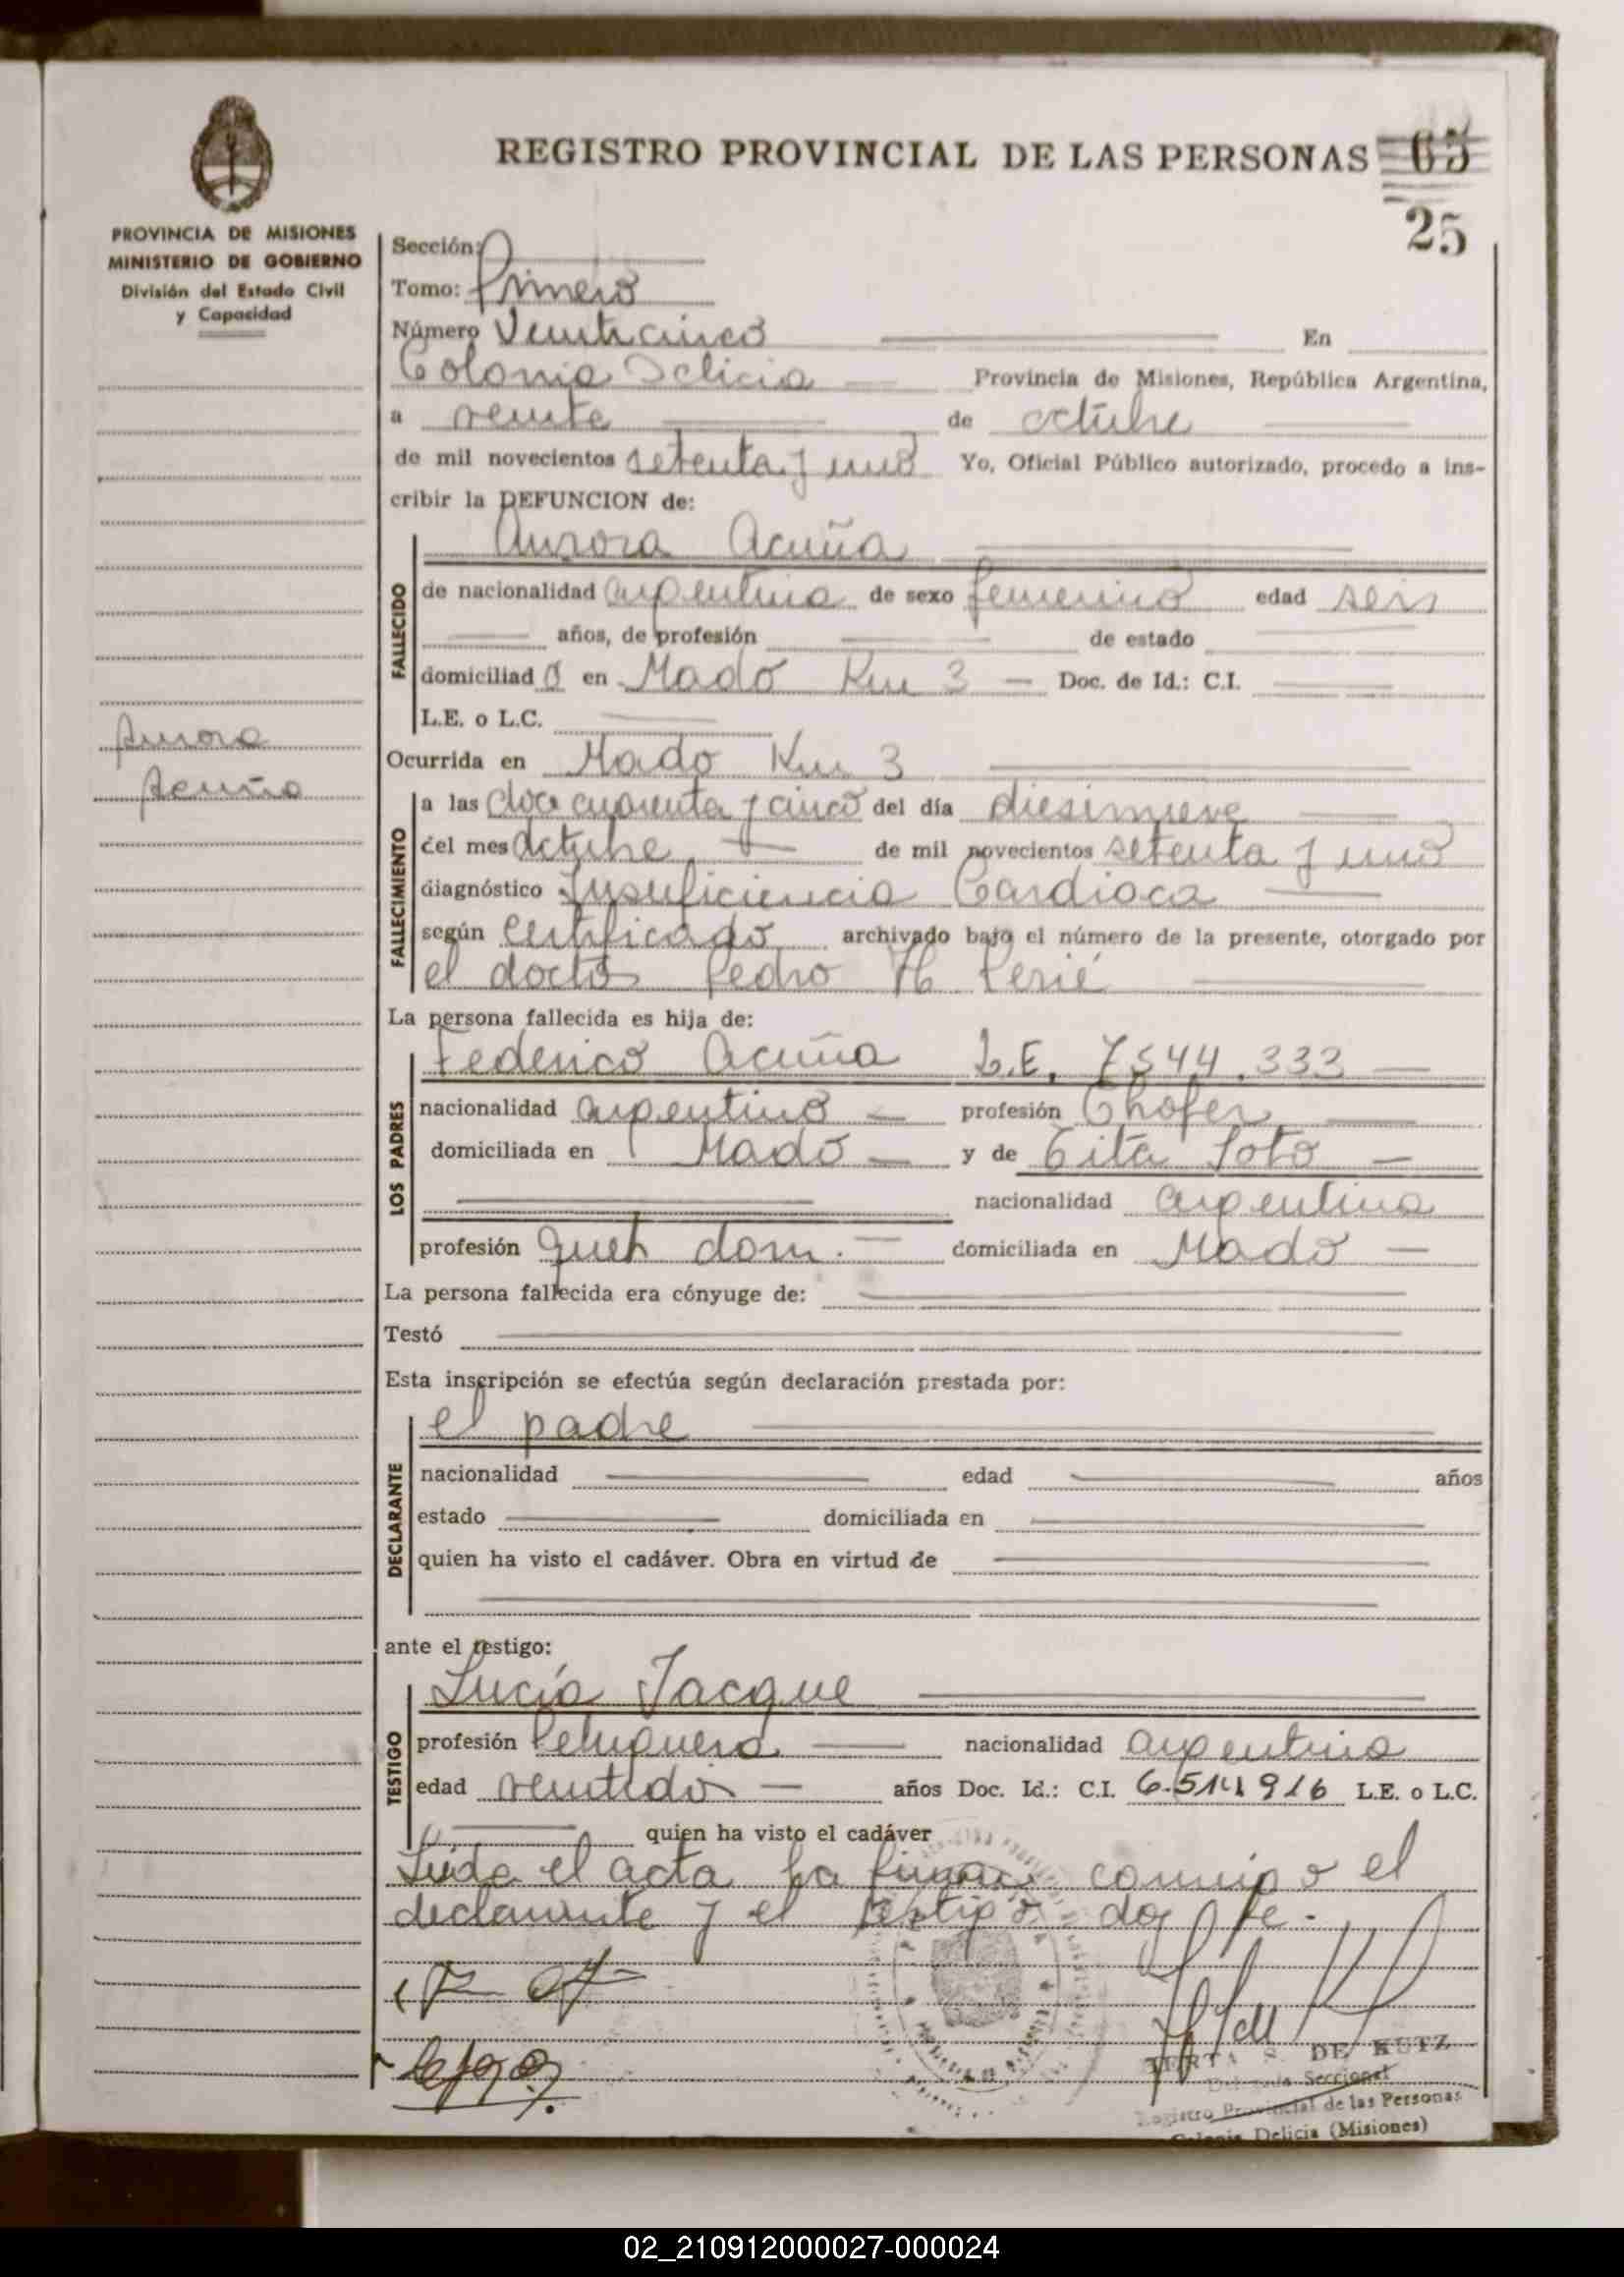 REGISTRO PROVINCIAL DE LAS PERSONAS 65
25
PROVINCIA DE MISIONES
MINISTERIO DE GOBIERNO
División del Estado Civil
y Capacidad
Sección:
Tomo: Primero
Número Veinticinco En
Colonia Delicia Provincia de Misiones, República Argentina,
a veinte de octubre
de mil novecientos setenta y uno Yo, Oficial Público autorizado, procedo a ins-
cribir la DEFUNCION de:
Aurora Acuña
FALLECIDO
de nacionalidad argentina de sexo femenino edad seis
años, de profesión de estado
domiciliad o en Mado Km 3 Doc. de Id.: C.I.
L.E. o L.C.
Aurora
Acuña
Ocurrida en Mado Km 3
FALLECIMIENTO
a las doce cuarenta y cinco del día diesinueve
del mes octubre de mil novecientos setenta y uno
diagnóstico Insuficiencia Cardioca
según Certificado archivado bajo el número de la presente, otorgado por
el doctor Pedro H. Perié
La persona fallecida es hija de:
LOS PADRES
Federico Acuña L.E. 7544.333
nacionalidad argentino profesión Chofer
domiciliada en Mado y de Tita Soto
nacionalidad argentina
profesión queh dom. domiciliada en Mado
La persona fallecida era cónyuge de:
Testó
Esta inscripción se efectúa según declaración prestada por:
DECLARANTE
el padre
nacionalidad edad años
estado domiciliada en
quien ha visto el cadáver. Obra en virtud de
ante el testigo:
TESTIGO
Lucía Jacque
profesión Peluquera nacionalidad argentina
edad veintidos años Doc. Id.: C.I. 6.511916 L.E. o L.C.
quien ha visto el cadáver
Leida el acta la firman conmigo el
declarante y el testigo doy fe.
S. DE KUTZ
Seccional
Registro Provincial de las Personas
Colonia Delicia (Misiones)
02_210912000027-000024